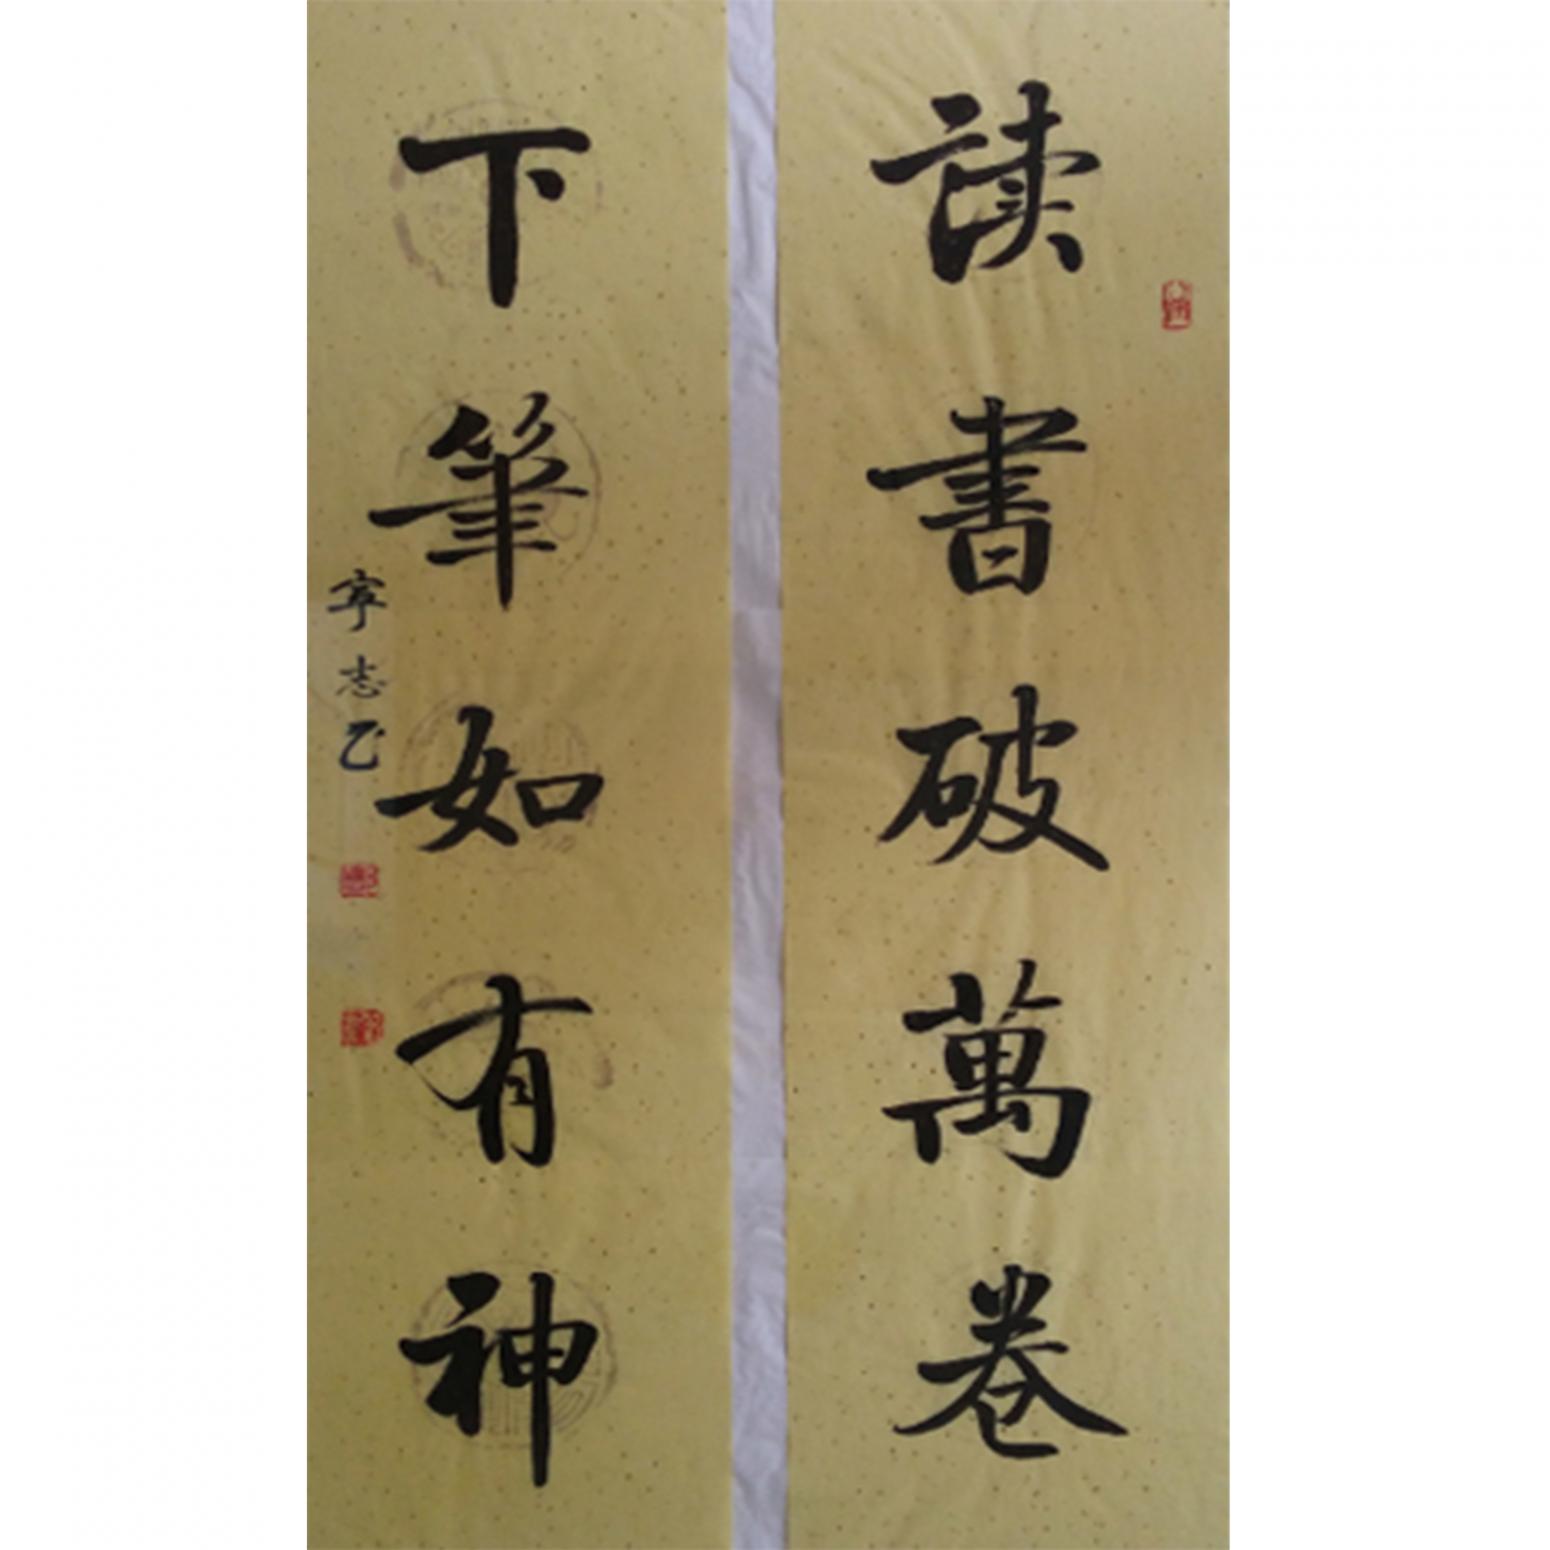 读書破萬卷
下筆如有神
寧志乙